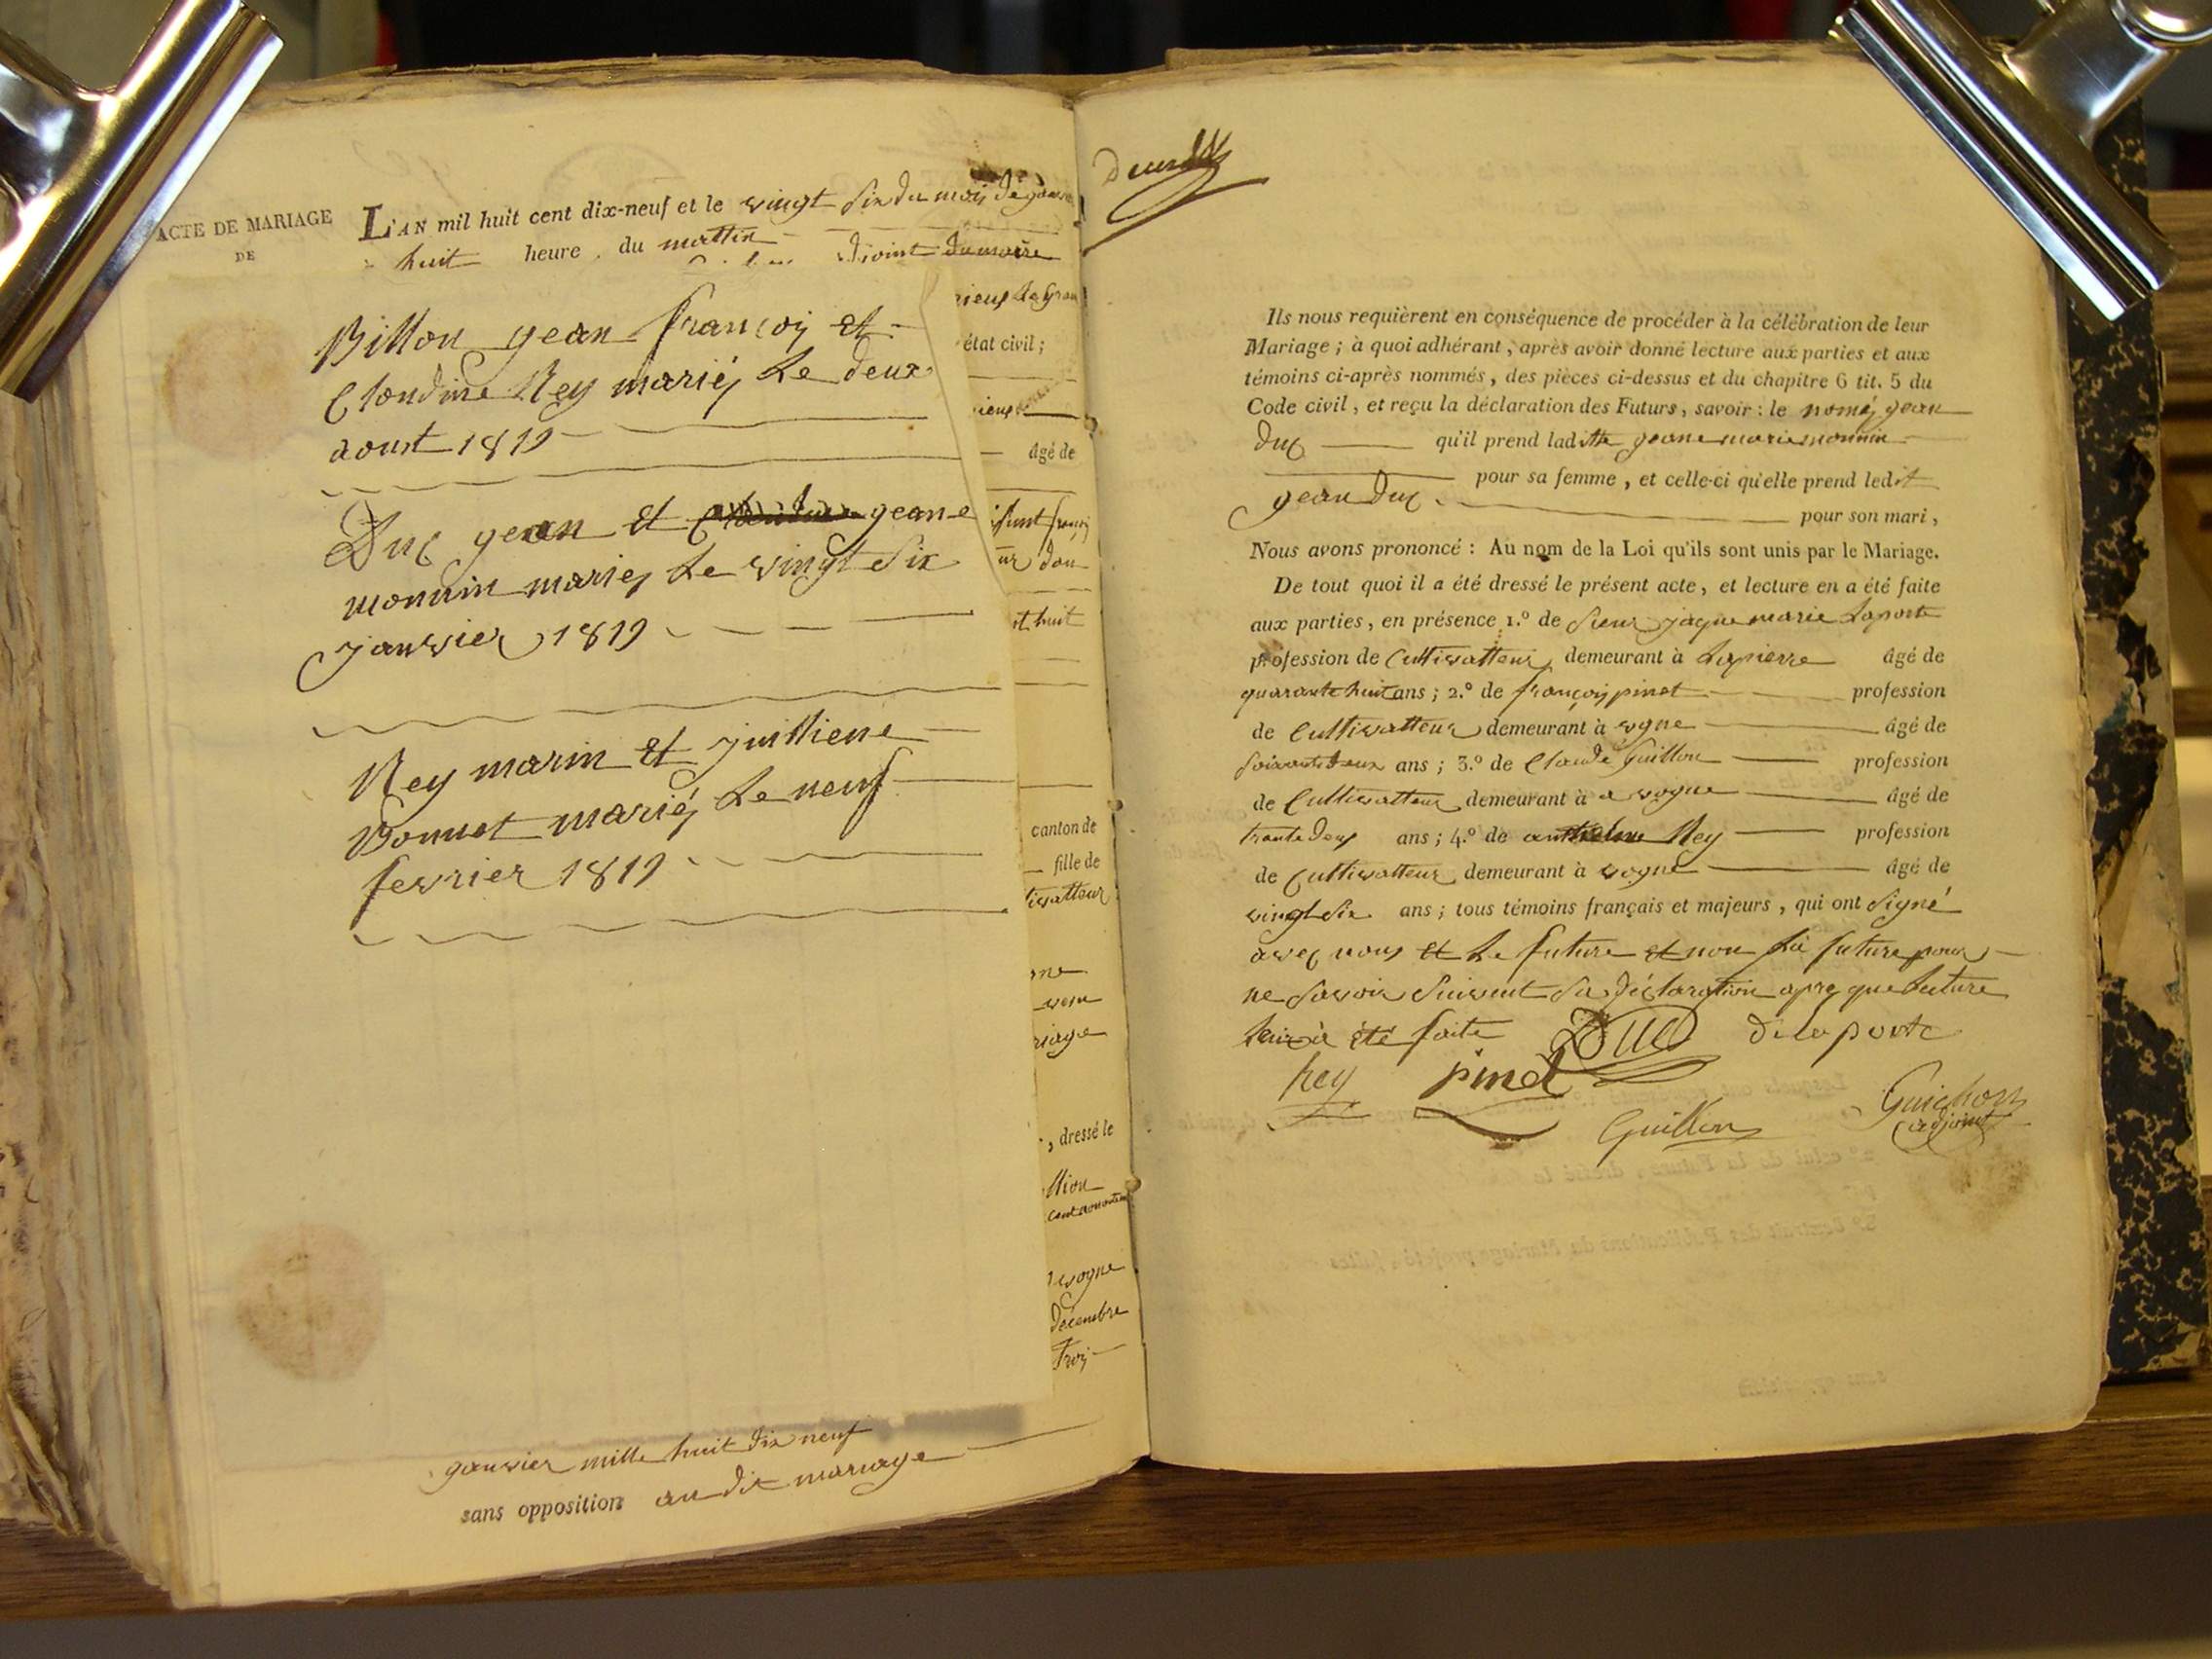 ACTE DE MARIAGE
DE
L'AN mil huit cent dix-neuf et le vingt Six du mois de
huit heure du mattin
djoint du maire
Billon gean françois et
Claudine Rey mariés Le deux
aoust 1819
Duc gean et geane
monnin mariés Le vingt Six
janvier 1819
Rey marin et juilliene
Bonnet mariés Le neuf
fevrier 1819
état civil ;
âgé de
t huit
canton de
fille de
tivatteur
riage
, dressé le
decembre
janvier mille huit dix neuf
sans opposition au dit mariage
Ils nous requièrent en conséquence de procéder à la célébration de leur
Mariage ; à quoi adhérant, après avoir donné lecture aux parties et aux
témoins ci-après nommés, des pièces ci-dessus et du chapitre 6 tit. 5 du
Code civil, et reçu la déclaration des Futurs, savoir : le nomé gean
duc qu'il prend laditte geane marie monnin
pour sa femme, et celle-ci qu'elle prend ledit
gean duc pour son mari,
Nous avons prononcé : Au nom de la Loi qu'ils sont unis par le Mariage.
De tout quoi il a été dressé le présent acte, et lecture en a été faite
aux parties, en présence 1.º de Sieur jaque marie Laporte
profession de Cultivatteur demeurant à Lapierre âgé de
quarante huit ans ; 2.º de françois pinet profession
de Cultivatteur demeurant à vogne âgé de
Soixante deux ans ; 3.º de Claude Guillon profession
de Cultivatteur demeurant à a vogne âgé de
trante deux ans ; 4.º de anthelme Rey profession
de Cultivatteur demeurant à vogne âgé de
vingt Six ans ; tous témoins français et majeurs, qui ont Signé
avec nous et Le future et non La future pour
ne Savoir Suivent Sa déclaration apres que Lecture
Leur à été faite Duc delaporte
Rey pinet
Guillon Guichon
adjoint